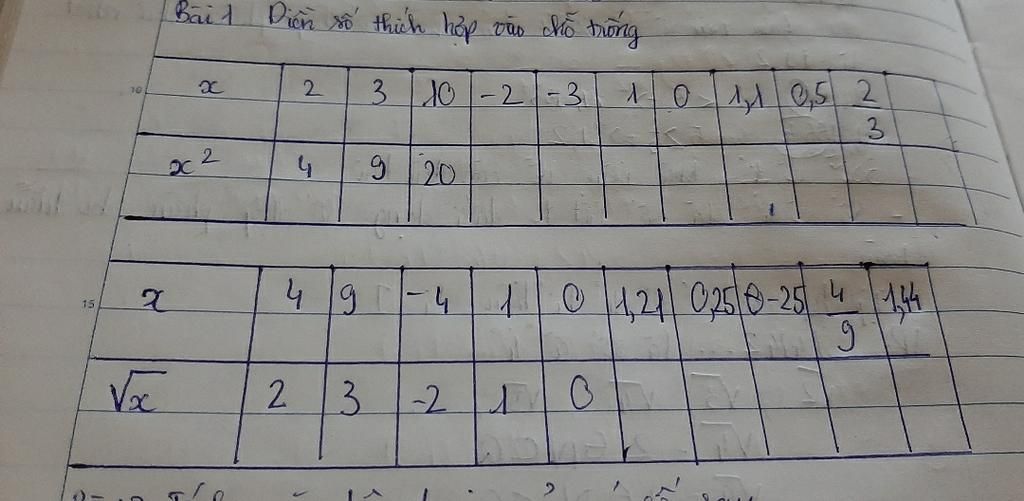 Bài 1 Điền số thích hợp vào chỗ trống
10
x 2 3 10 -2 -3 1 0 1,1 0,5 2
3
x² 4 9 20
15
x 4 9 -4 1 0 1,21 0,25 0-25 4/9 1,44
√x 2 3 -2 1 0